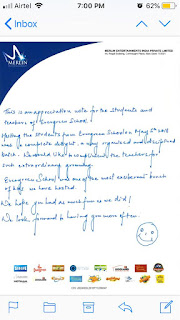 Airtel
7:00 PM
62%
Inbox
MERLIN ENTERTAINMENTS INDIA PRIVATE LIMITED
MERLIN
This is an appreciation note for the students
and teachers of Evergreen School.
Hosting the students from Evergreen School on May 5th 2018
was a complete delight, a very organised and disciplined
batch. We would like to compliment the teachers for
such extraordinary grooming.
Evergreen School was one of the most exuberant bunch
of kids we have hosted.
We hope you had as much fun as we did!
We look forward to having you more often.